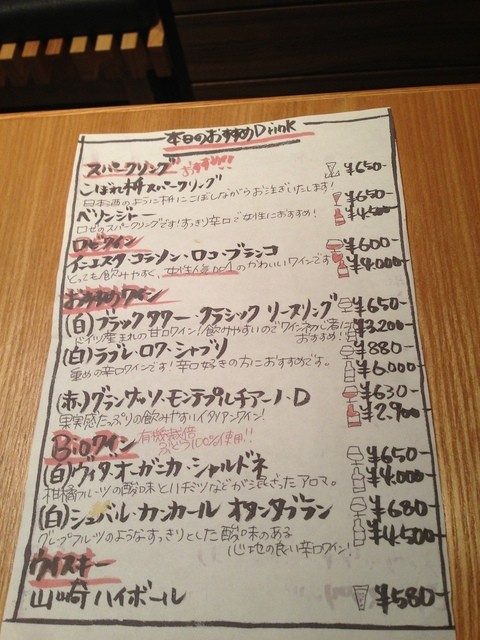 本日のおすすめDrink
スパークリング おすすめ!!
こぼれ枡スパークリング ¥650-
日本酒のように枡にこぼしながらお注ぎいたします!
ベリンジャー ¥650-
ロゼのスパークリングです!すっきり辛口で女性におすすめ! ¥4,500-
ロゼワイン
イニエスタ・コラソン・ロコ・ブランコ ¥600-
とっても飲みやすく、女性人気no1のかわいいワインです ¥4,000-
おすすめワイン
(白)ブラックタワー・クラシック リースリング ¥650-
ドイツ産まれの甘口ワイン!飲みやすいのでワイン初心者に ¥3,200-
おすすめ!
(白)ラブレ・ロワ・シャブリ ¥880-
重めの辛口ワインです!辛口好きの方におすすめです。 ¥6,000-
(赤)グランヴァソ・モンテプルチアーノ・D ¥630-
果実感たっぷりの飲みやすいイタリアンワイン! ¥2,900-
Bioワイン 有機栽培
ぶどう100%使用!!
(白)ヴィダ・オーガニカ・シャルドネ ¥650-
柑橘フルーツの酸味とハチミツなどが混ざったアロマ。 ¥4,000-
(白)シュバル・カンカール オタンタブラン ¥680-
グレープフルーツのようなすっきりとした酸味のある ¥4,500-
心地の良い辛口ワイン!
ウイスキー
山崎ハイボール ¥580-